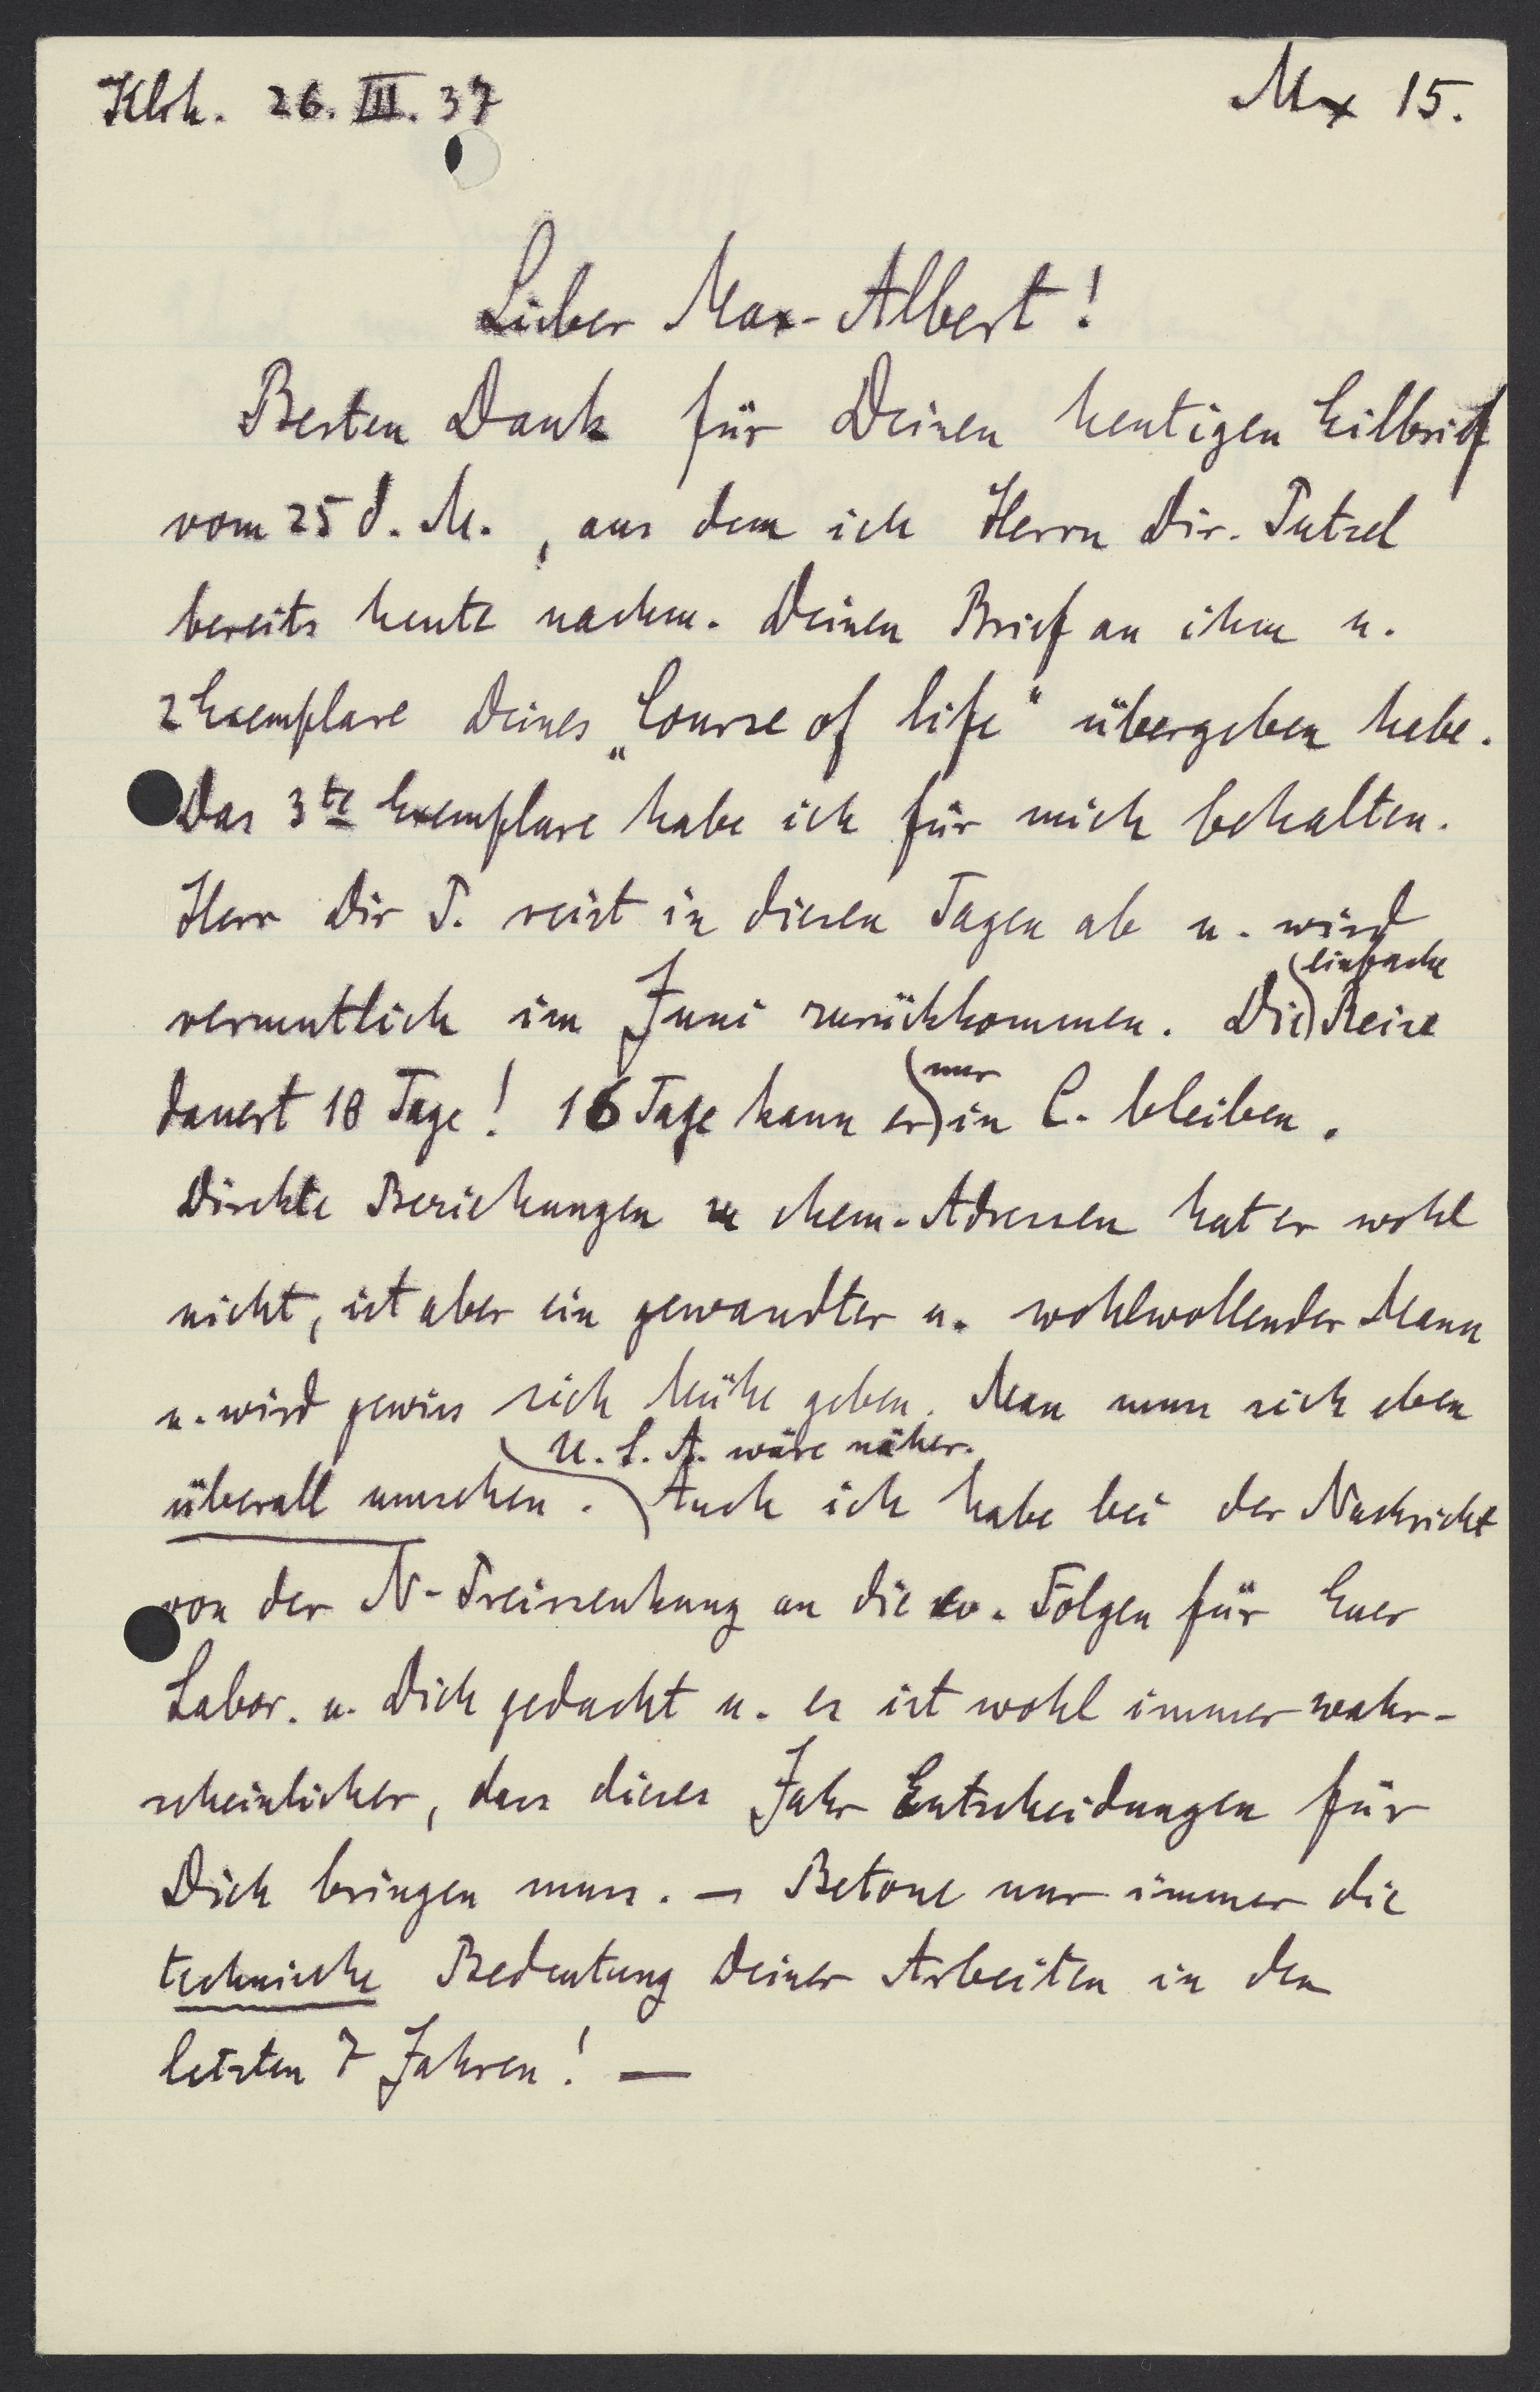 Klbk. 26. III. 37
Mx 15.
Lieber Max-Albert!
Besten Dank für Deinen heutigen Eilbrief
vom 25 d. M. , aus dem ich Herrn Dir. Putzel
bereits heute nachm. Deinen Brief an ihm u.
2 Exemplare Deines „Course of life“ übergeben habe.
Das 3te Exemplare habe ich für mich behalten.
Herr Dir P. reist in diesen Tagen ab u. wird
einfache
vermutlich im Juni zurückkommen. Die Reise
nur
dauert 18 Tage! 16 Tage kann er in C. bleiben.
Direkte Beziehungen zu chem. Adressen hat er wohl
nicht, ist aber ein gewandter u. wohlwollender Mann
u. wird gewiss sich Mühe geben. Man muss sich eben
U.S.A. wäre näher.
überall umsehen. Auch ich habe bei der Nachricht
von der N-Preissenkung an die ev. Folgen für Euer
Labor. u. Dich gedacht u. es ist wohl immer wahr-
scheinlicher, dass dieses Jahr Entscheidungen für
Dich bringen muss. — Betone nur immer die
technische Bedeutung Deiner Arbeiten in den
letzten 7 Jahren! —